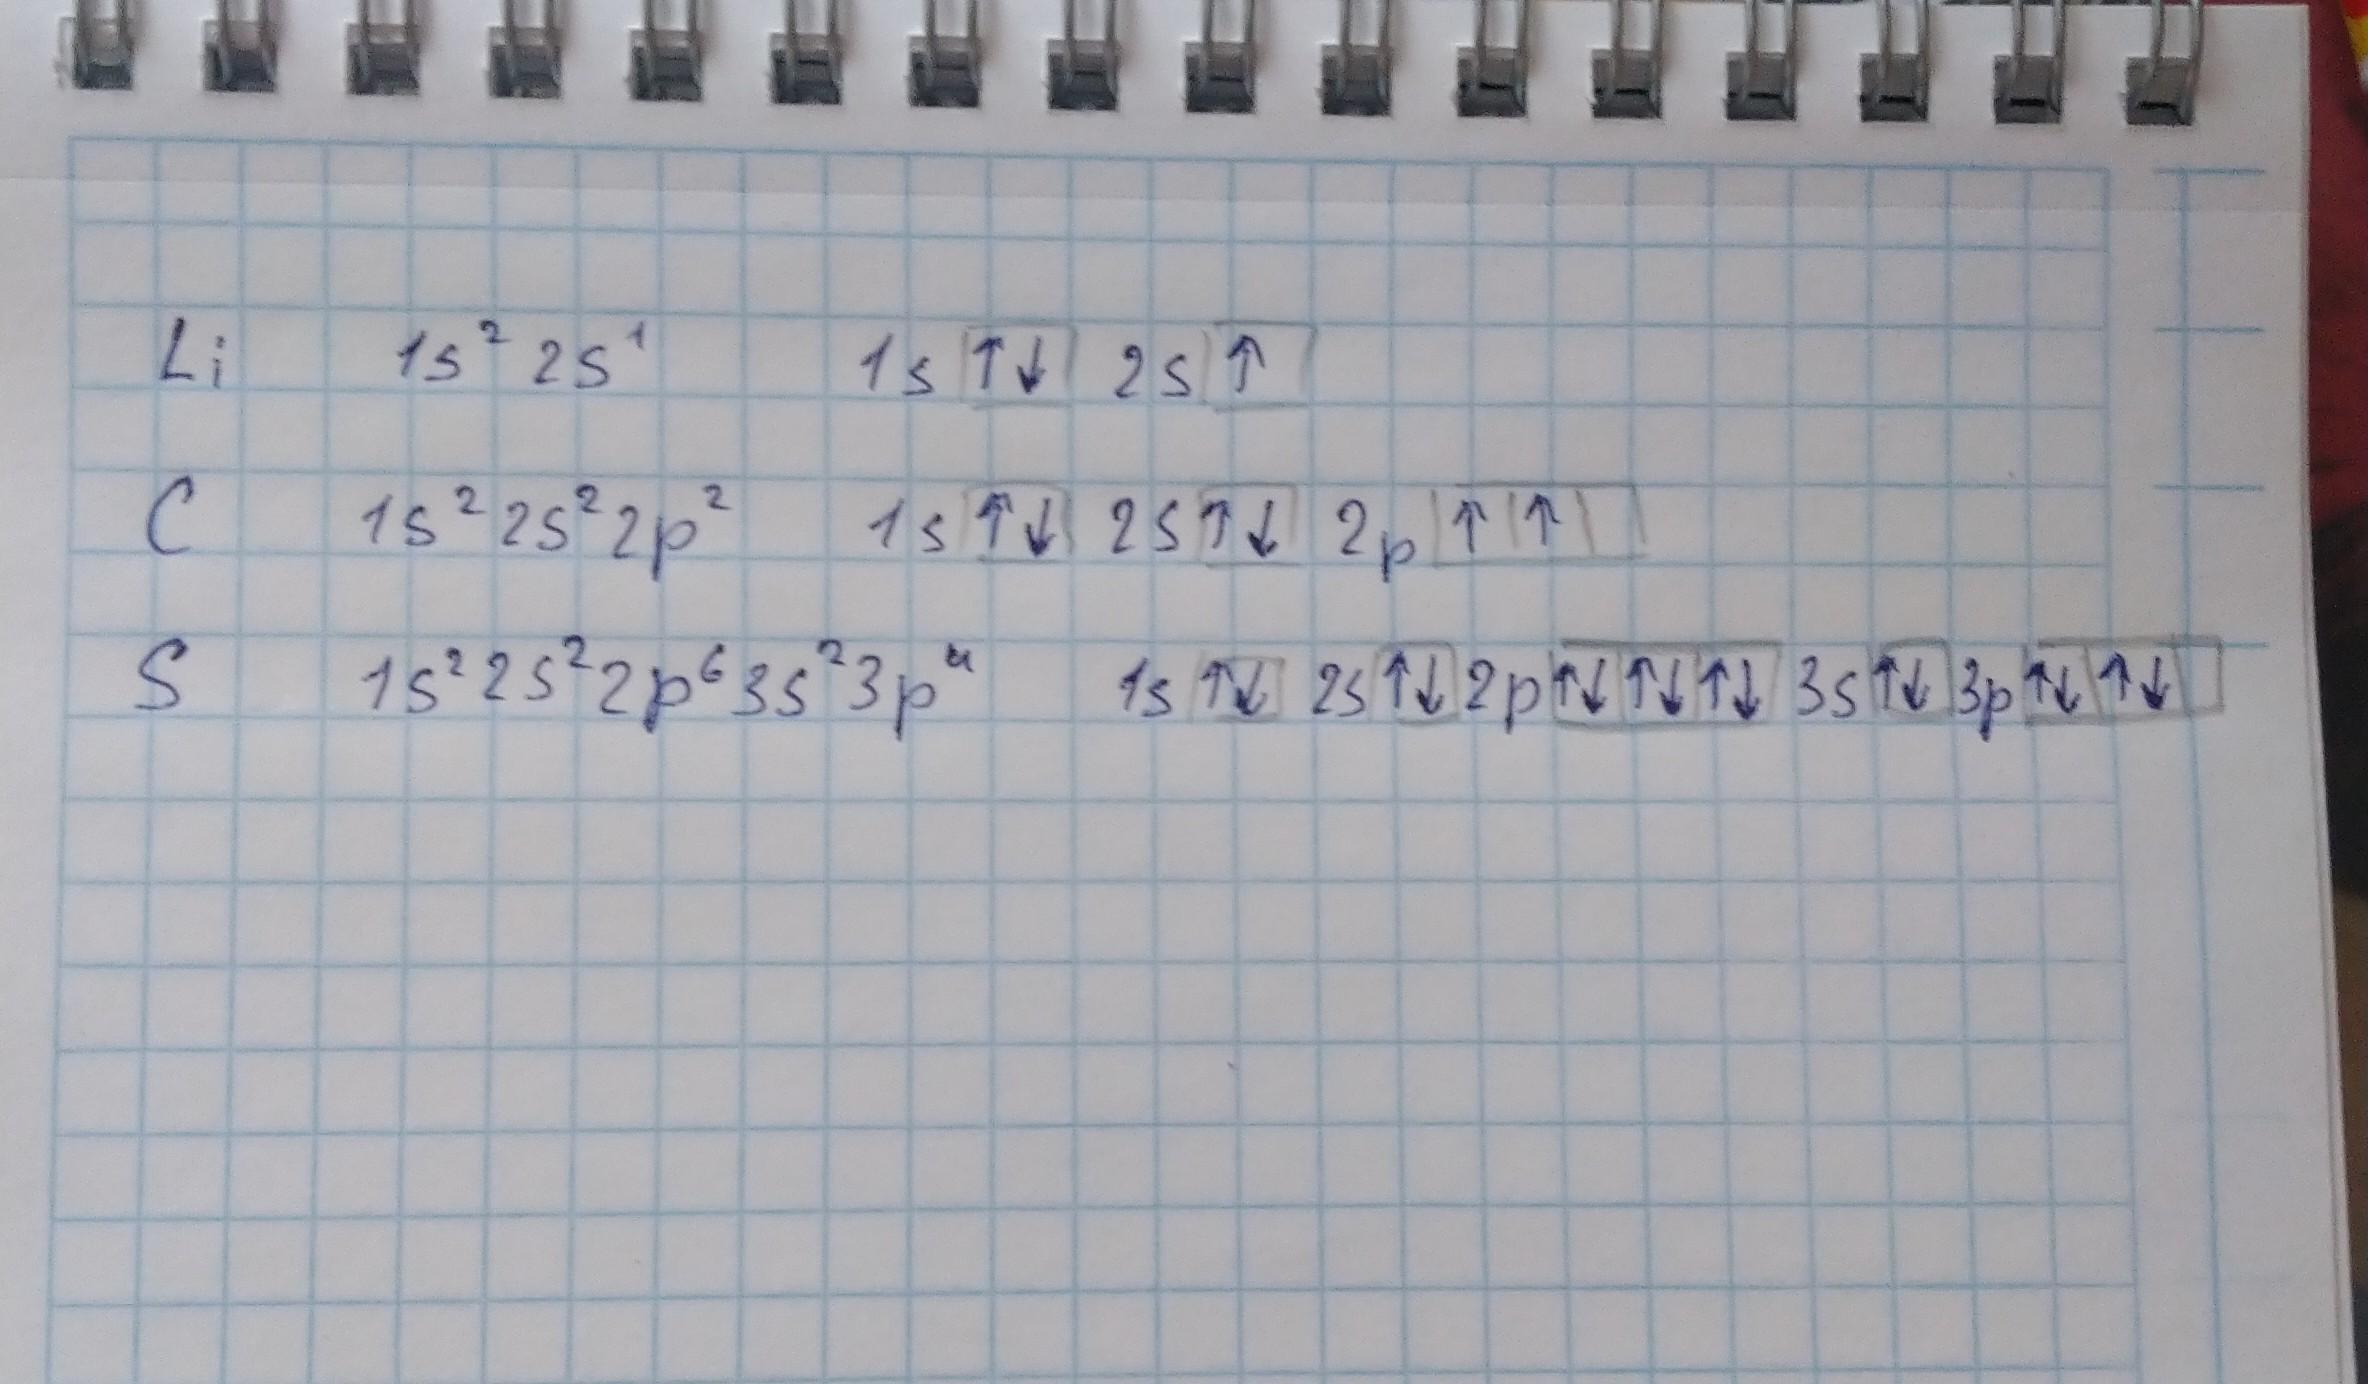 Li 1s² 2s¹ 1s ↑↓ 2s ↑
C 1s² 2s² 2p² 1s ↑↓ 2s ↑↓ 2p ↑ ↑
S 1s² 2s² 2p⁶ 3s² 3p⁴ 1s ↑↓ 2s ↑↓ 2p ↑↓ ↑↓ ↑↓ 3s ↑↓ 3p ↑↓ ↑↓